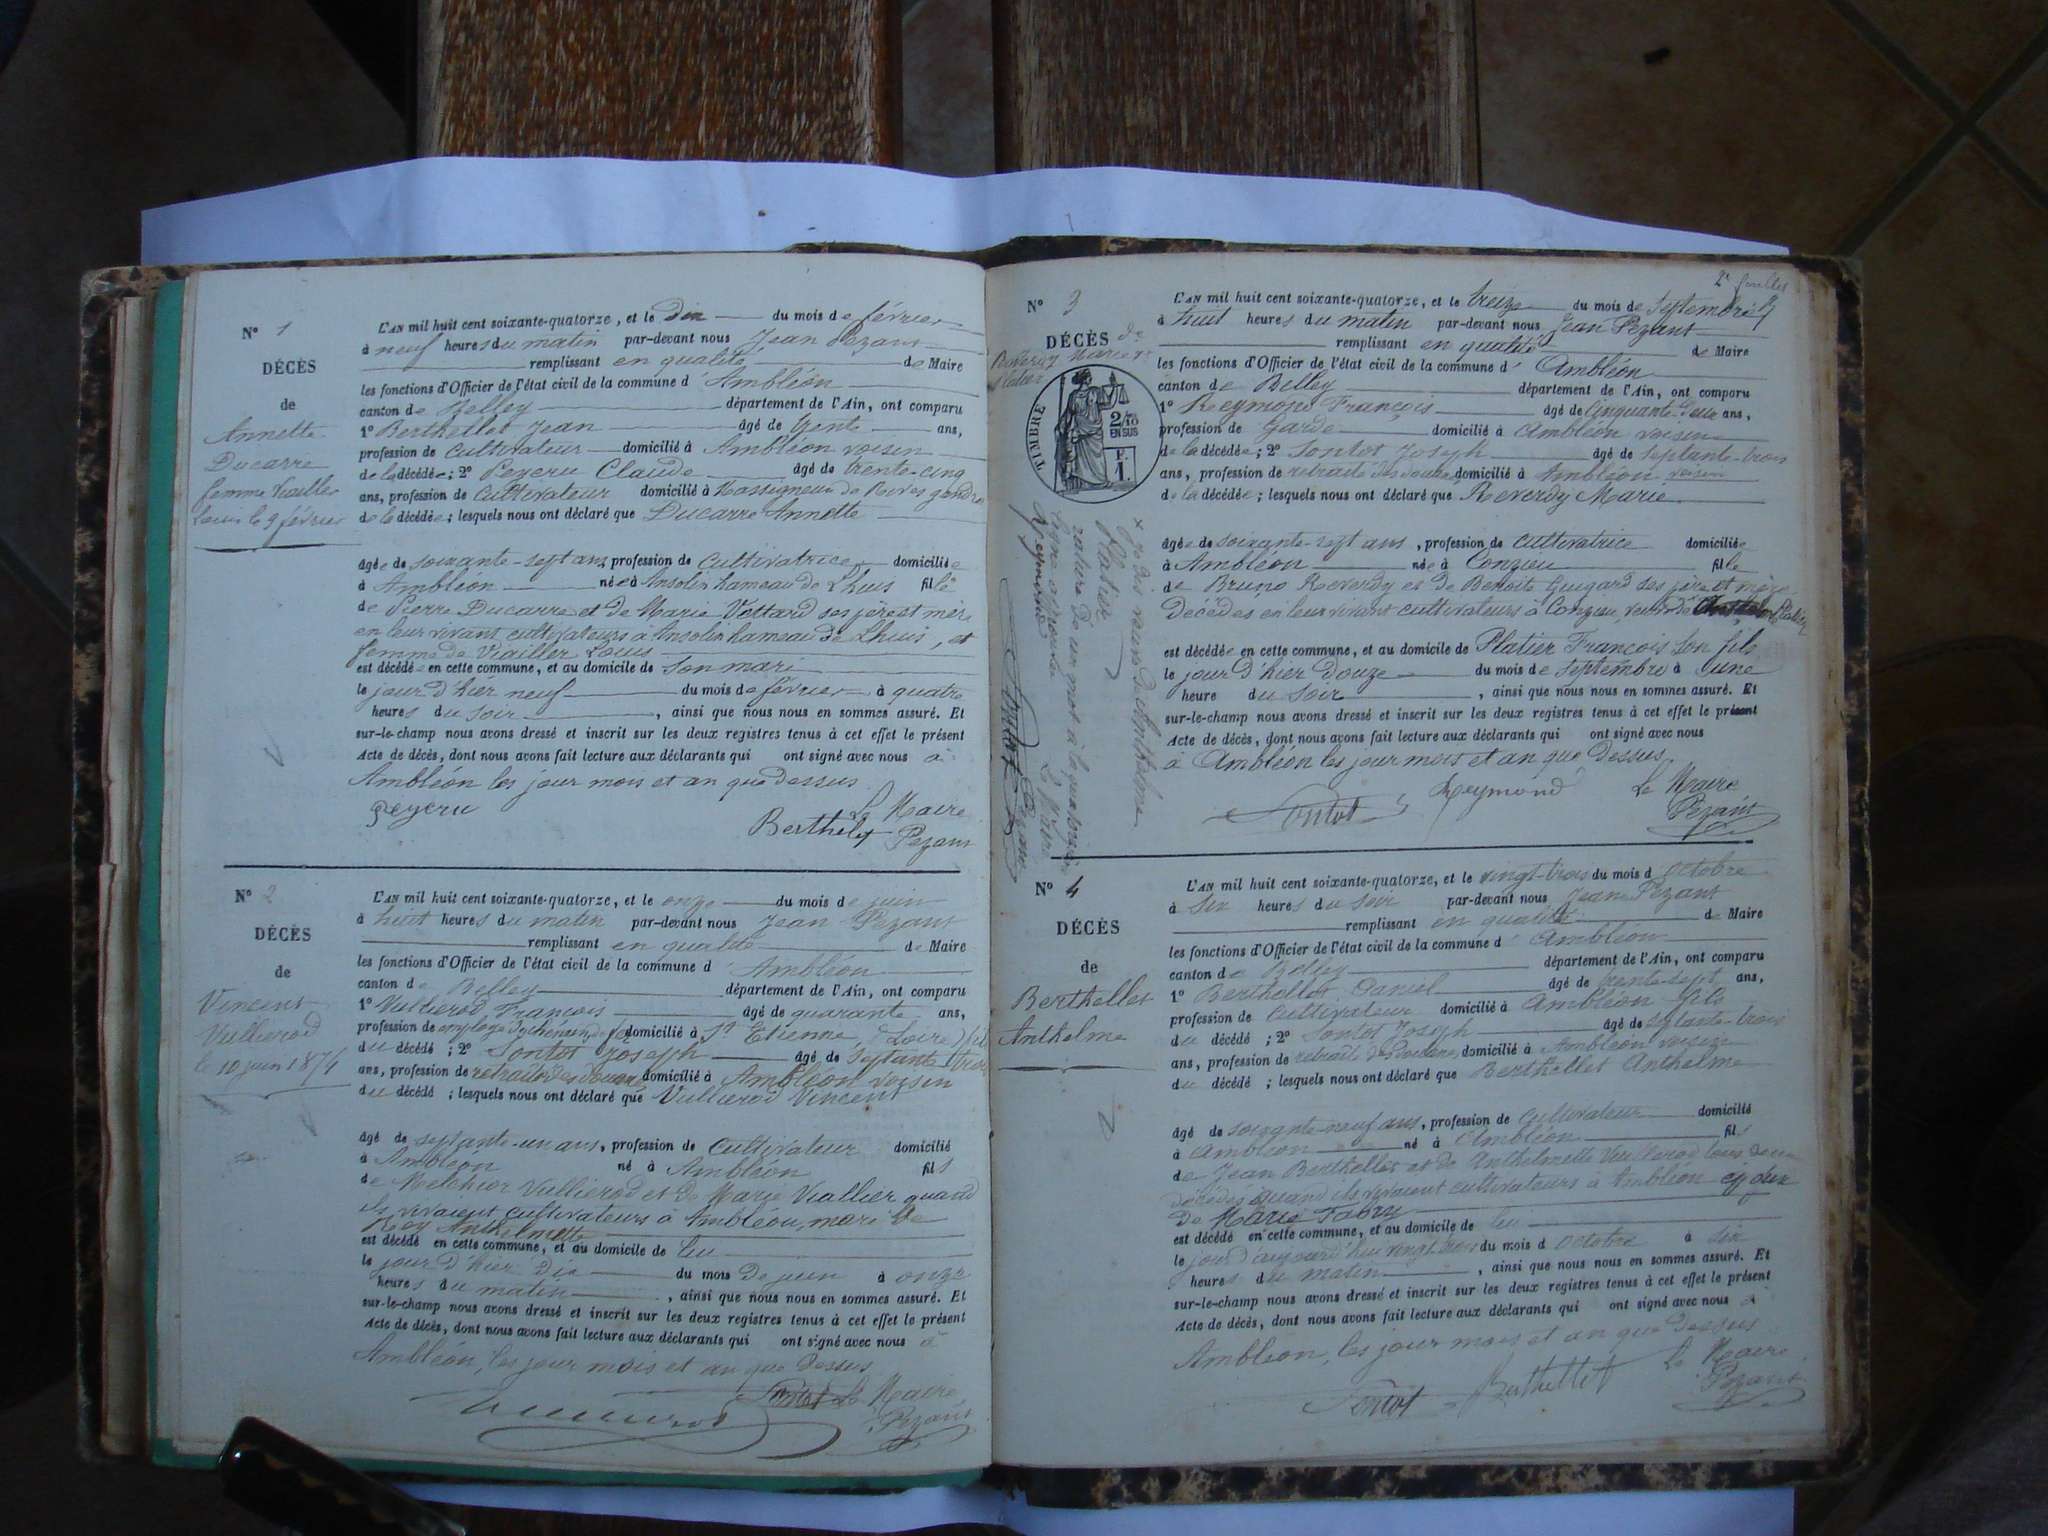 N° 1
DÉCÈS
de
Annette
Ducarre
femme Viailler
Louis le 9 février
L'AN mil huit cent soixante-quatorze, et le Dix du mois de février
à neuf heures du matin par-devant nous Jean Pezant
remplissant en qualité de Maire
les fonctions d'Officier de l'état civil de la commune d'Ambléon
canton de Belley département de l'Ain, ont comparu
1° Berthellet Jean âgé de trente ans,
profession de cultivateur domicilié à Ambléon voisin
de la décédée ; 2° Peyeru Claude âgé de trente-cinq
ans, profession de Cultivateur domicilié à Massigneu de Rives gendre
de la décédée ; lesquels nous ont déclaré que Ducarre Annette
âgée de soixante-sept ans, profession de Cultivatrice domiciliée
à Ambléon née à Insolin hameau de Lhuis fille
de Pierre Ducarre et de Marie Vettard ses père et mère
en leur vivant cultivateurs à Insolin hameau de Lhuis, et
femme de Viailler Louis
est décédée en cette commune, et au domicile de son mari
le jour d'hier neuf du mois de février à quatre
heures du soir , ainsi que nous nous en sommes assuré. Et
sur-le-champ nous avons dressé et inscrit sur les deux registres tenus à cet effet le présent
Acte de décès, dont nous avons fait lecture aux déclarants qui ont signé avec nous à
Ambléon les jour mois et an que dessus
Peyeru
Le Maire
Berthelet Pezant
N° 2
DÉCÈS
de
Vincent
Vullierod
le 10 juin 1874
L'AN mil huit cent soixante-quatorze, et le onze du mois de juin
à huit heures du matin par-devant nous Jean Pezant
remplissant en qualité de Maire
les fonctions d'Officier de l'état civil de la commune d'Ambléon
canton de Belley département de l'Ain, ont comparu
1° Vullierod François âgé de quarante ans,
profession de employé du chemin de fer domicilié à St Etienne, (Loire) fils
du décédé ; 2° Sontot Joseph âgé de septante trois
ans, profession de retraité des douanes domicilié à Ambléon voisin
du décédé ; lesquels nous ont déclaré que Vullierod Vincent
âgé de septante-un ans, profession de Cultivateur domicilié
à Ambléon né à Ambléon fils
de Melchior Vullierod et de Marie Viallier quand
ils vivaient cultivateurs à Ambléon, mari de
Rey Anthelmette
est décédé en cette commune, et au domicile de lui
le jour d'hier dix du mois de juin à onze
heures du matin , ainsi que nous nous en sommes assuré. Et
sur-le-champ nous avons dressé et inscrit sur les deux registres tenus à cet effet le présent
Acte de décès, dont nous avons fait lecture aux déclarants qui ont signé avec nous à
Ambléon, les jour mois et an que dessus
Sontot Le Maire
Pezant
2e feuillet
N° 3
DÉCÈS de
Reverdy Marie Ve
Platier
TIMBRE
2/10
EN SUS
F.
1.
x ze dis veuve de Anthelme
Platier
rature de un mot à la quatorzième
ligne approuvée Le Maire
Reymond Sontot Pezant
L'AN mil huit cent soixante-quatorze, et le treize du mois de Septembre
à huit heures du matin par-devant nous Jean Pezant
remplissant en qualité de Maire
les fonctions d'Officier de l'état civil de la commune d'Ambléon
canton de Belley département de l'Ain, ont comparu
1° Reymond François âgé de Cinquante-deux ans,
profession de Garde domicilié à Ambléon voisin
de la décédée ; 2° Sontot Joseph âgé de septante-trois
ans, profession de retraité des douanes domicilié à Ambléon voisin
de la décédée ; lesquels nous ont déclaré que Reverdy Marie
âgée de soixante-sept ans, profession de Cultivatrice domiciliée
à Ambléon née à Conzieu fille
de Bruno Reverdy et de Benoite Guigard ses père et mère
Décédés en leur vivant cultivateurs à Conzieu, veuve de Platier
est décédée en cette commune, et au domicile de Platier François son fils
le jour d'hier douze du mois de septembre à une
heure du soir , ainsi que nous nous en sommes assuré. Et
sur-le-champ nous avons dressé et inscrit sur les deux registres tenus à cet effet le présent
Acte de décès, dont nous avons fait lecture aux déclarants qui ont signé avec nous
à Ambléon les jour mois et an que dessus
Sontot Reymond Le Maire
Pezant
N° 4
DÉCÈS
de
Berthellet
Anthelme
L'AN mil huit cent soixante-quatorze, et le vingt-trois du mois d'octobre
à six heures du soir par-devant nous Jean Pezant
remplissant en qualité de Maire
les fonctions d'Officier de l'état civil de la commune d'Ambléon
canton de Belley département de l'Ain, ont comparu
1° Berthellet Daniel âgé de trente-sept ans,
profession de Cultivateur domicilié à Ambléon fils
du décédé ; 2° Sontot Joseph âgé de septante-trois
ans, profession de retraité des douanes domicilié à Ambléon voisin
du décédé ; lesquels nous ont déclaré que Berthellet Anthelme
âgé de soixante-neuf ans, profession de Cultivateur domicilié
à Ambléon né à Ambléon fils
de Jean Berthellet et de Anthelmette Vullierod tous deux
décédés quand ils vivaient cultivateurs à Ambléon époux
de Marie Fabry
est décédé en cette commune, et au domicile de lui
le jour d'aujourd'hui vingt-trois du mois d'octobre à six
heures du matin , ainsi que nous nous en sommes assuré. Et
sur-le-champ nous avons dressé et inscrit sur les deux registres tenus à cet effet le présent
Acte de décès, dont nous avons fait lecture aux déclarants qui ont signé avec nous à
Ambléon, les jour mois et an que dessus
Sontot Berthellet Le Maire
Pezant